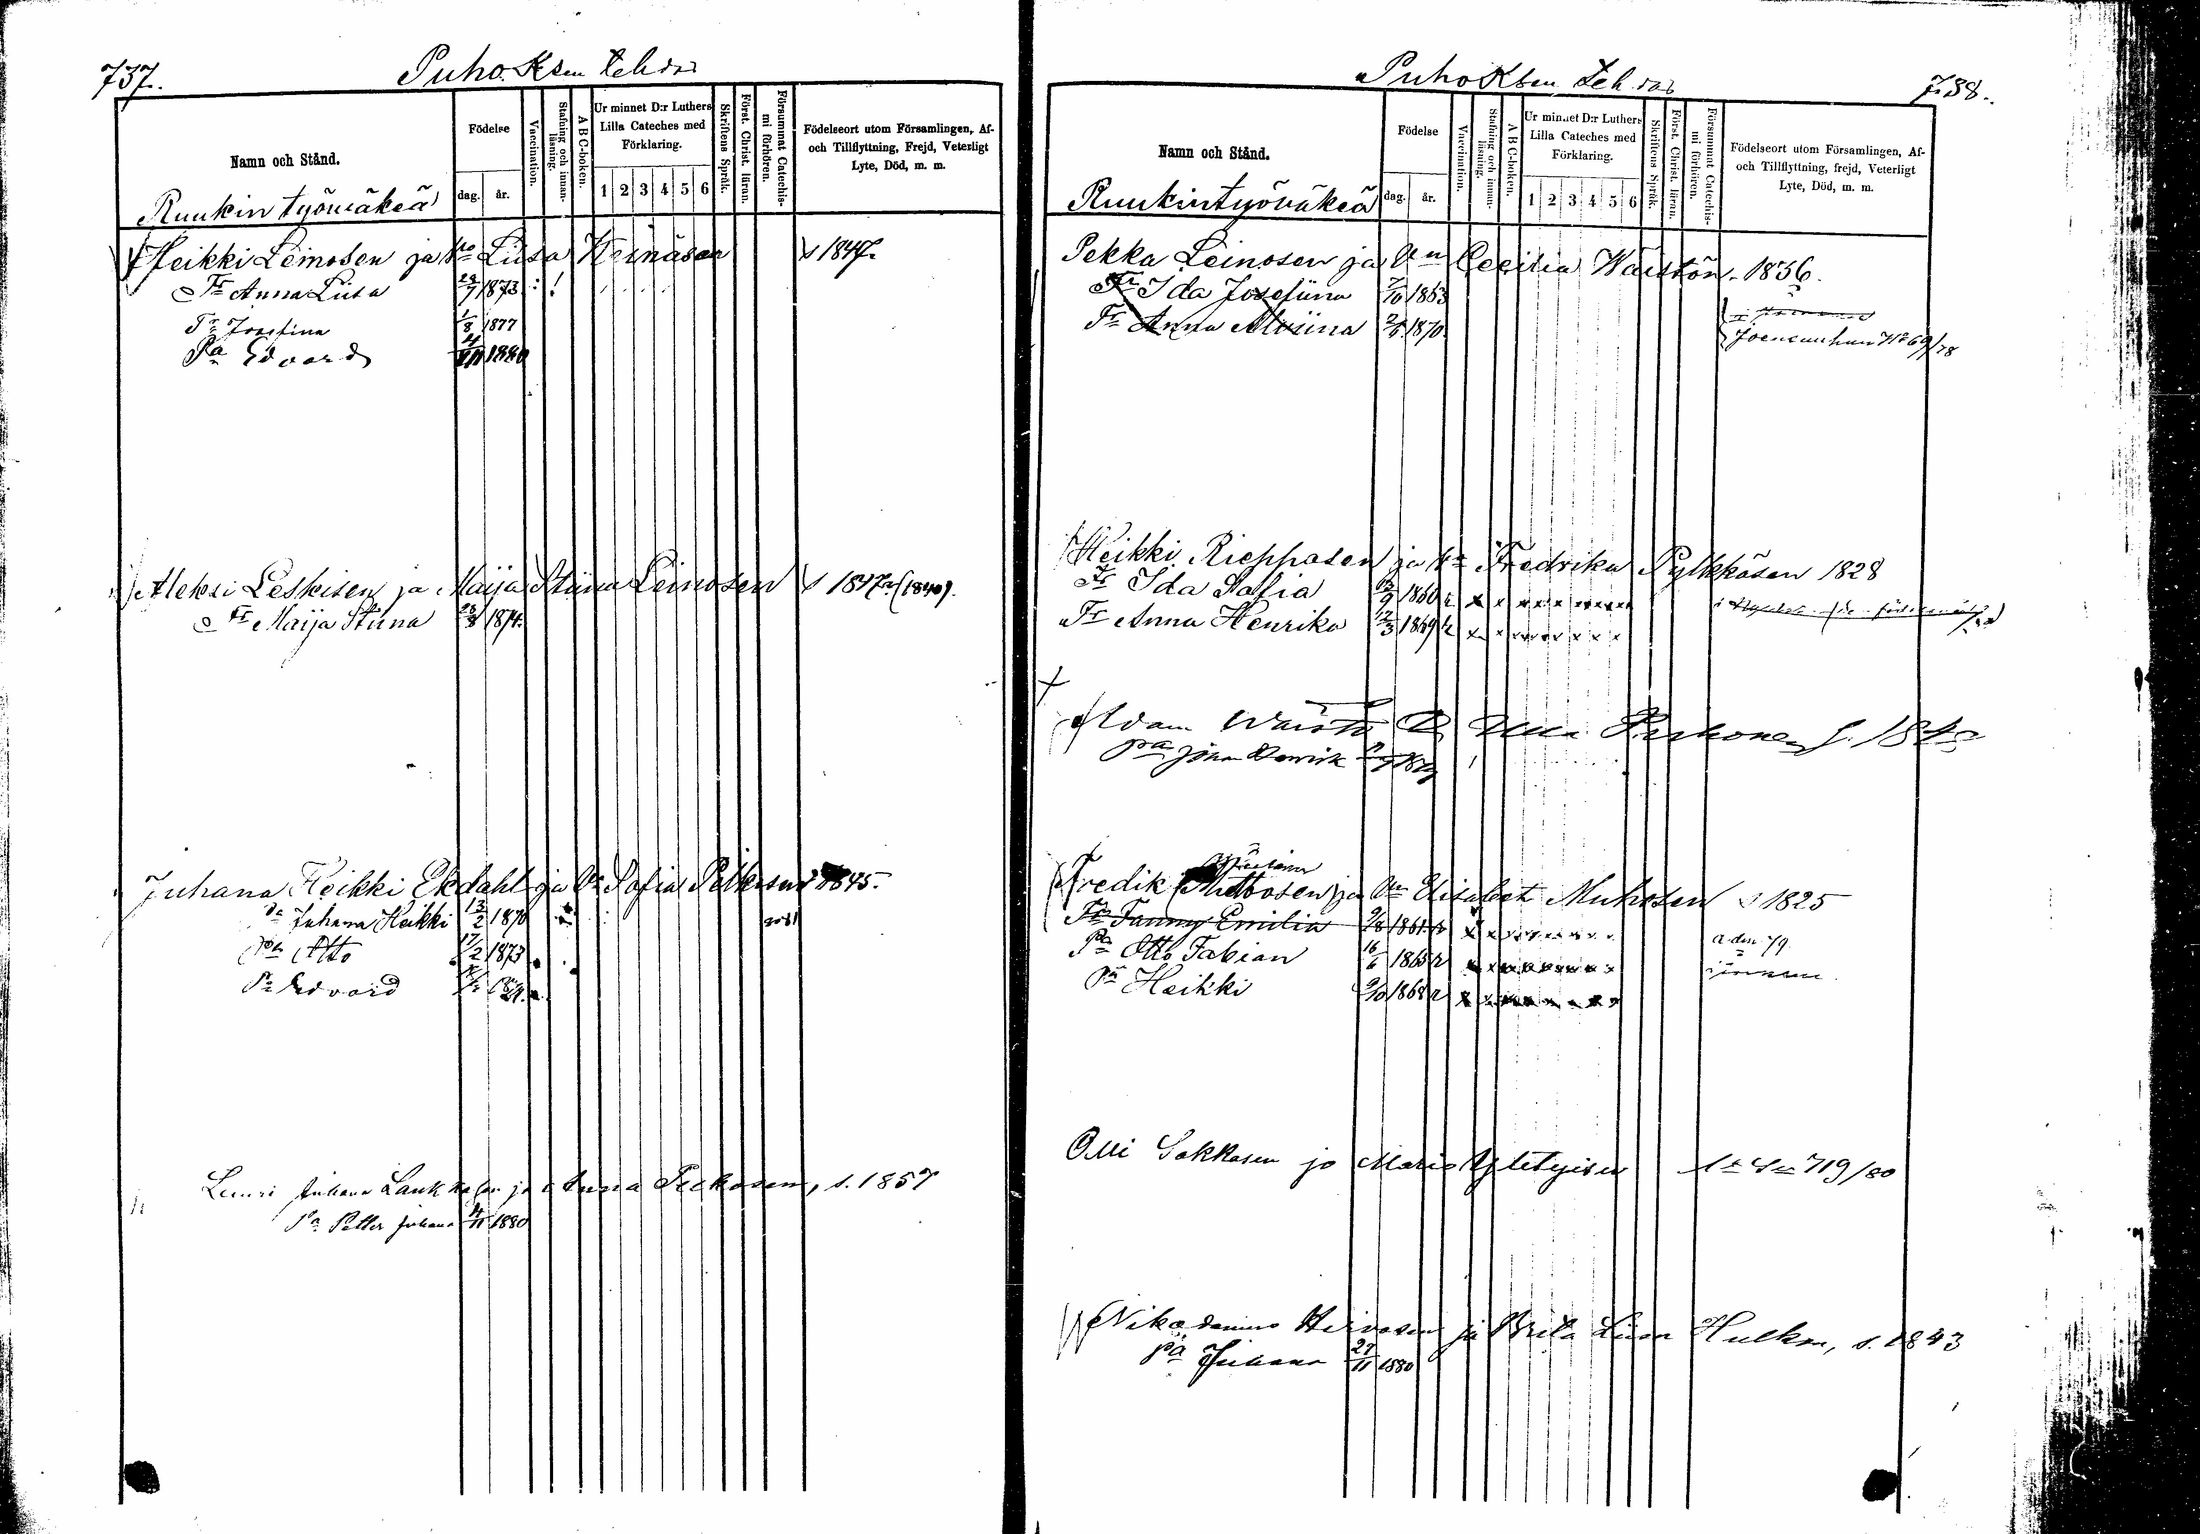 737.
Puhoksen tehdas
Namn och Stånd.
Födelse
dag.
år.
Vaccination.
Stafning och innan-
läsning.
A B C-boken.
Ur minnet D:r Luthers
Lilla Cateches med
Förklaring.
1 2 3 4 5 6
Skriftens Språk.
Först. Christ. läran.
Försummat Catechis-
mi förhören.
Födelseort utom Församlingen, Af-
och Tillflyttning, Frejd, Veterligt
Lyte, Död, m. m.
Ruukin työväkeä
Heikki Leinosen ja Vo Liisa Heinäsen s 1847.
Tr Anna Liisa 29/7 1873
Tr Josefina 1/8 1877
Pa Edvard 4/11 1880
Aleksi Leskisen ja Maija Stiina Leinosen s 1847 (1840).
Tr Maija Stiina 28/3 1874.
Juhana Heikki Ekdahl ja Vo Sofia Pelkosen 1845.
Pa Juhana Heikki 13/2 1870
Pa Otto 17/2 1873
Pa Edvard
Lauri Juhana Laukkasen ja Anna s. 1857
Pa Petter Juhana 4/11 1880
738.
Puhoksen Tehdas
Namn och Stånd.
Födelse
dag.
år.
Vaccination.
Stafning och innan-
läsning.
A B C-boken.
Ur minnet D:r Luthers
Lilla Cateches med
Förklaring.
1 2 3 4 5 6
Skriftens Språk.
Först. Christ. läran.
Försummat Catechis-
mi förhören.
Födelseort utom Församlingen, Af-
och Tillflyttning, frejd, Veterligt
Lyte, Död, m. m.
Ruukintyöväkeä
Pekka Leinosen ja Vn Cecilia Waistön 1836.
Tr Ida Josefiina 7/10 1863
Tr Anna Alviina 2/8 1870.
Joensuuhun No 69/78
Heikki Riepposen ja Vn Fredrika Pylkkäsen 1828
Tr Ida Sofia 12/9 1860
Tr Anna Henrika 12/3 1869
Adam Waistö
Pa Johan Henrik
Fredik ja Vn Elisabet Muhosen s 1825
Tr Fanny Emilia 9/8 1861
Pa Otto Fabian 16/6 1865
Pa Heikki 9/10 1868
Olli Sakkasen ja Maria 719/80
Nikodemus Hirvosen ja Brita Liisa s. 1843
Pa Juhana 27/11 1880